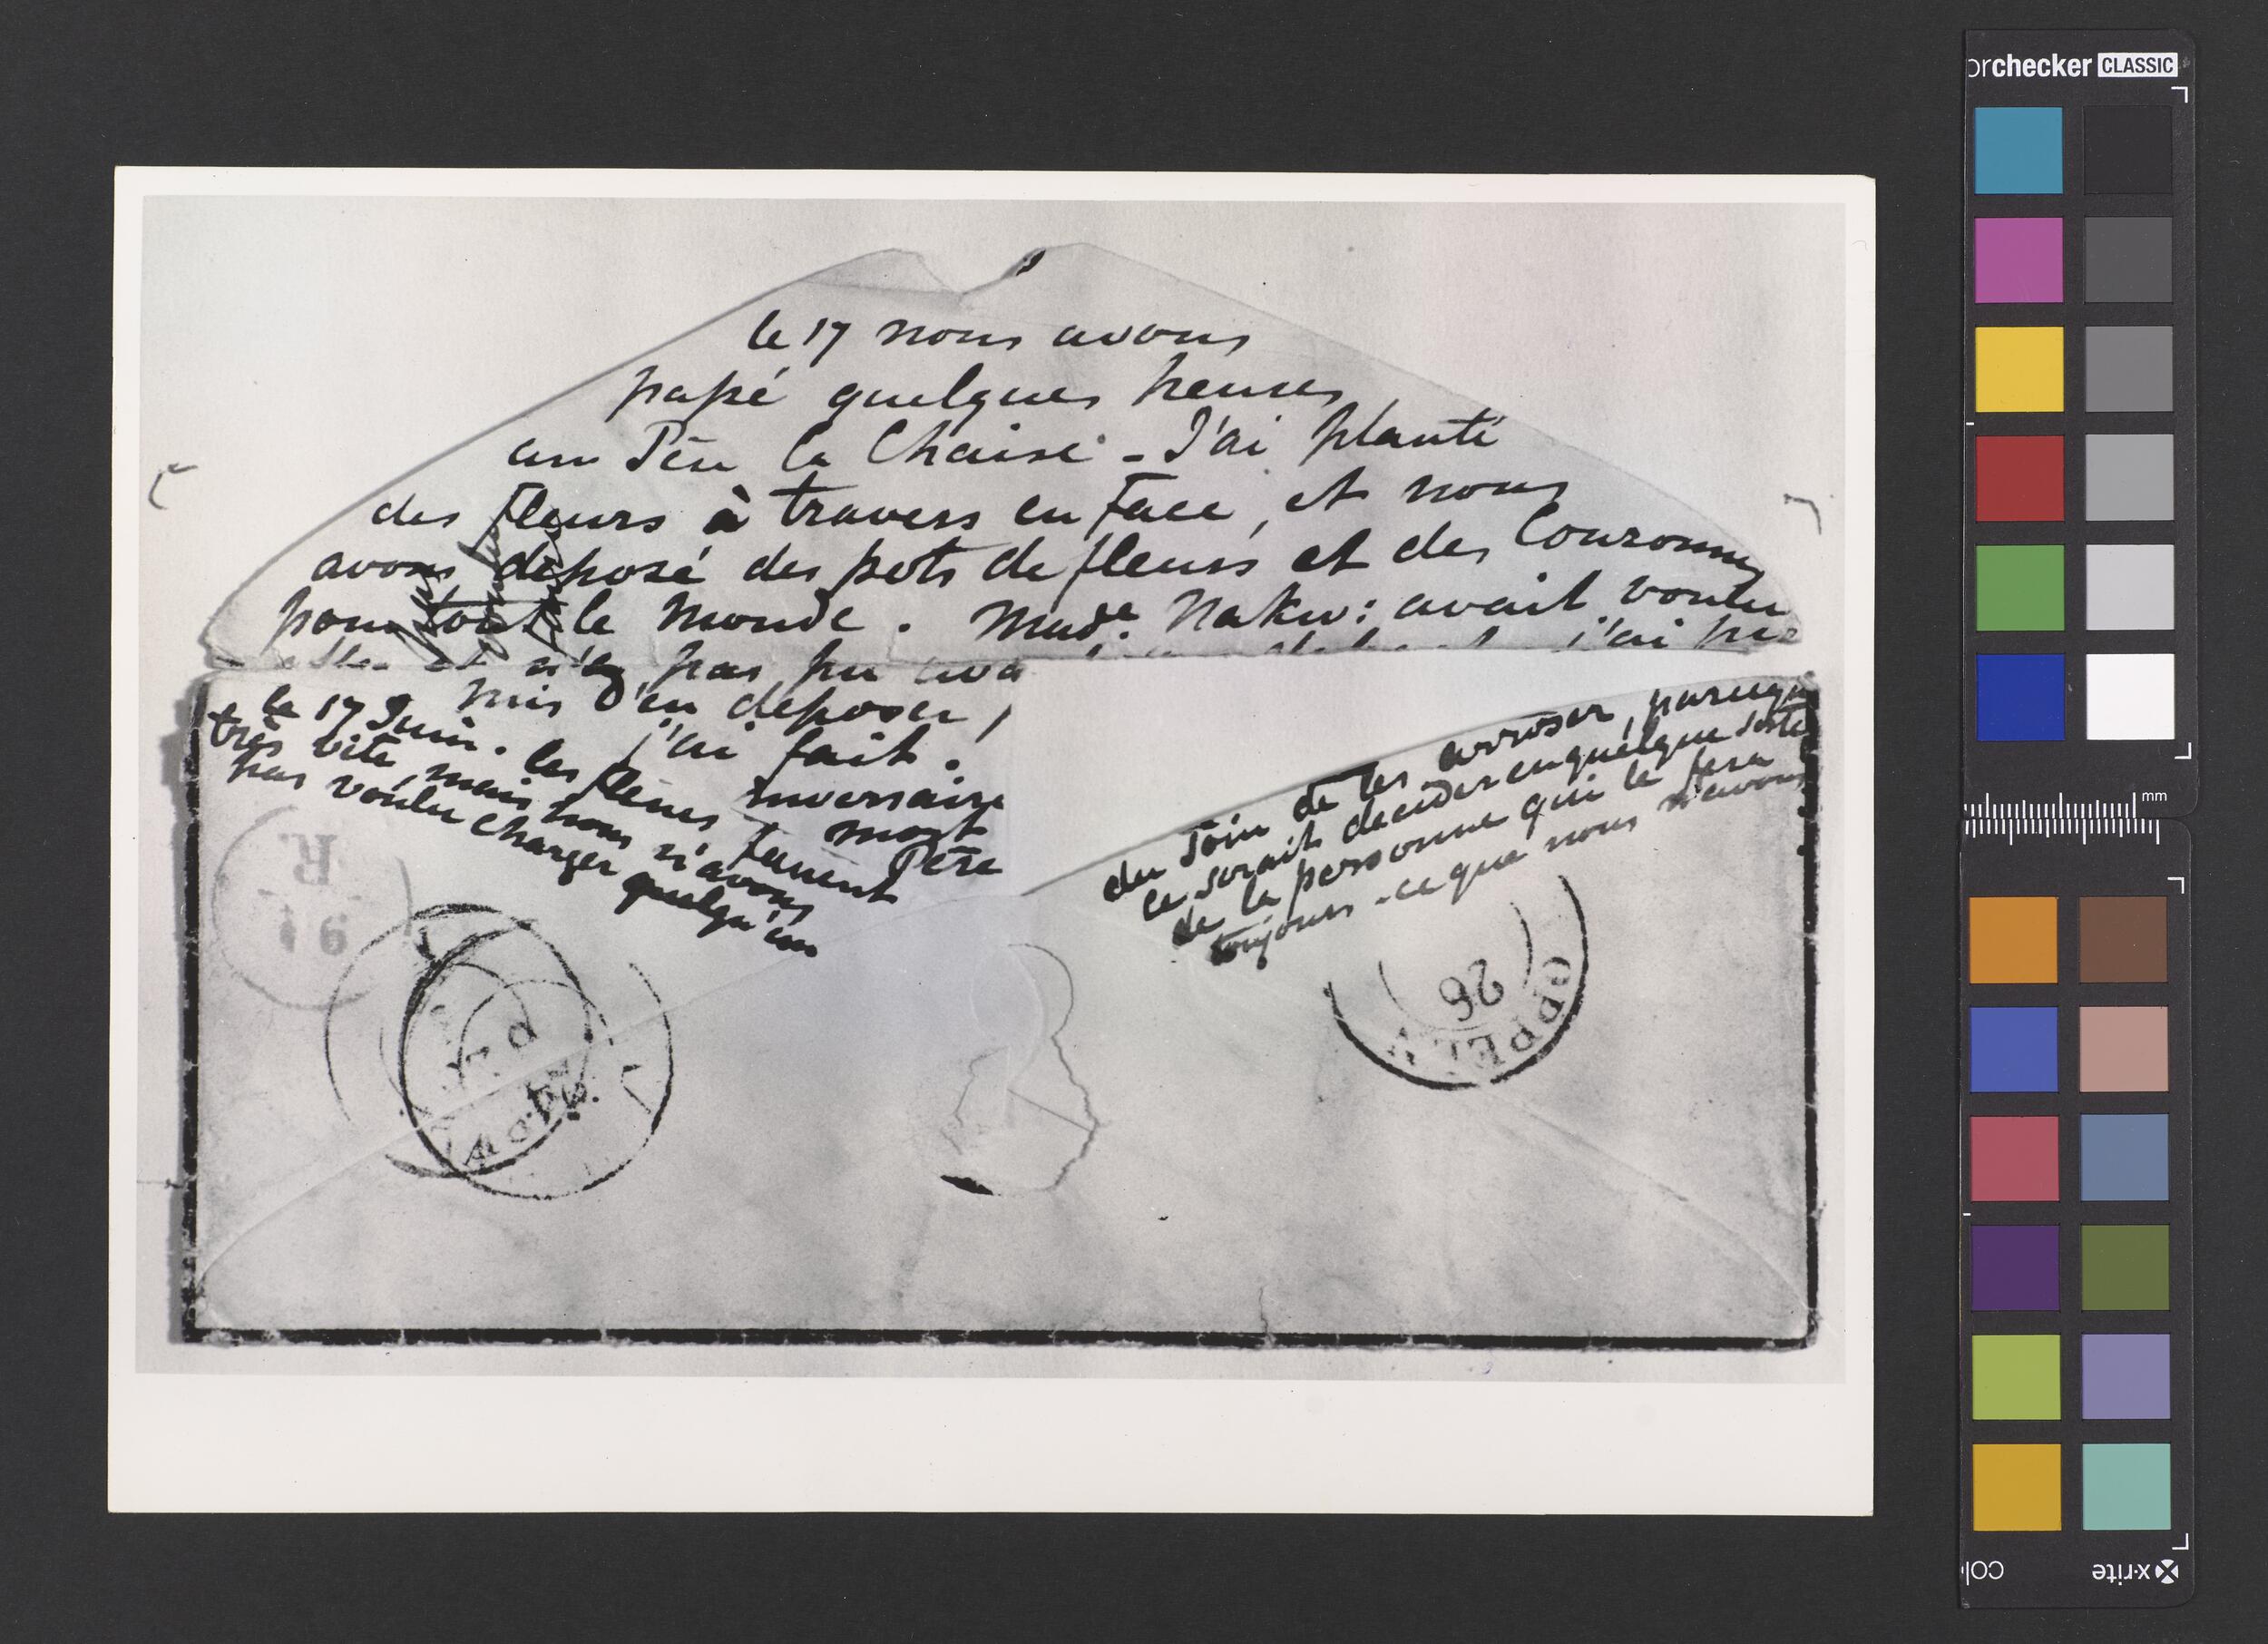 le 17 nous avons
passé quelques heures
au Père la Chaise - J'ai planté
des fleurs à travers en face, et nous
avons déposé des pots de fleurs et des Couronnes
pour tout le Monde. Made. Nakw: avait voulu
n'a pas pu j'ai pu
d'en deposer,
j'ai fait.
mort
Père
le 17 Juin. les fleurs fanent
très vite, mais nous n'avons
pas voulu charger quelqu'un
du soin de les arroser, parce qu
ce serait decider en quelque sorte
de la personne qui le fera
toujours - ce que nous n'avons
R.
19
26
orchecker CLASSIC
mm
col
x-rite